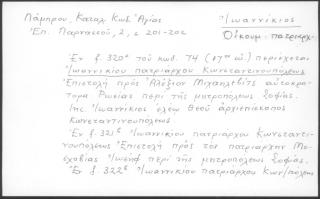 Λάμπρου, Καταλ. Κωδ. Ἁγίας
Ἰωαννίκιος
Ἐπ. Παρνασσοῦ, 2, σ. 201-202
Οἰκουμ. πατριάρχ.
Ἐν f. 320α τοῦ κωδ. 74 (17ου αἰ.) περιέχεται
Ἰωαννικίου πατριάρχου Κωνσταντινουπόλεως
Ἐπιστολὴ πρὸς Ἀλέξιον Μιχαηλοβίτς αὐτοκρά-
τορα Ρωσίας περὶ τῆς μητροπόλεως Σοφίας.
Ἰωαννίκιος ἐλέῳ θεοῦ ἀρχιεπίσκοπος
Κωνσταντινουπόλεως.
Ἐν f. 321β Ἰωαννικίου πατριάρχου Κωνσταντι-
νουπόλεως Ἐπιστολὴ πρὸς τὸν πατριάρχην Μο-
σχοβίας Ἰωσὴφ περὶ τῆς μητροπόλεως Σοφίας.
Ἐν f. 322β Ἰωαννικίου πατριάρχου Κων/πόλεως